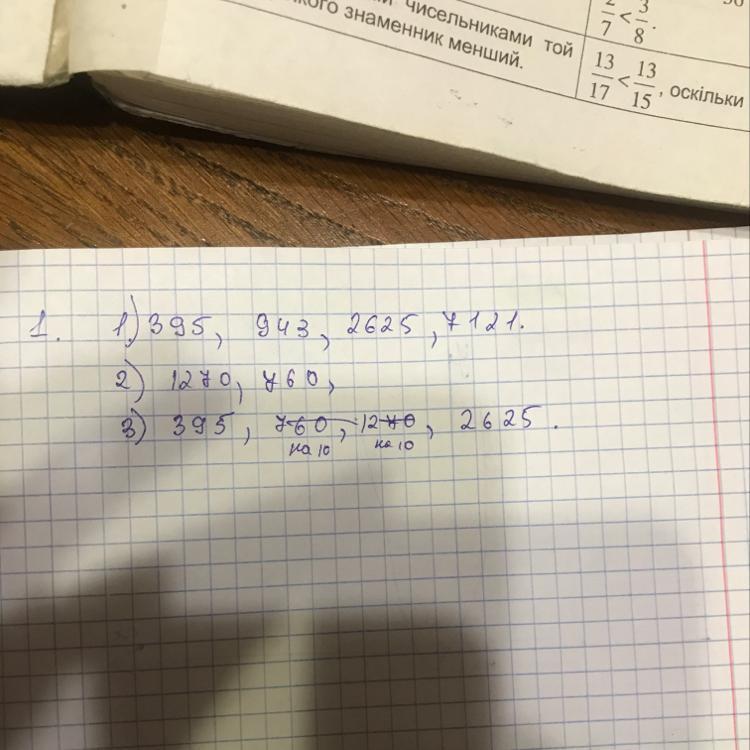 чисельниками той
знаменник менший.
2/7 < 3/8.
13/17 < 13/15, оскільки
1. 1) 395, 943, 2625, 7121.
2) 1270, 760,
3) 395, 760, 1270, 2625.
на 10 на 10